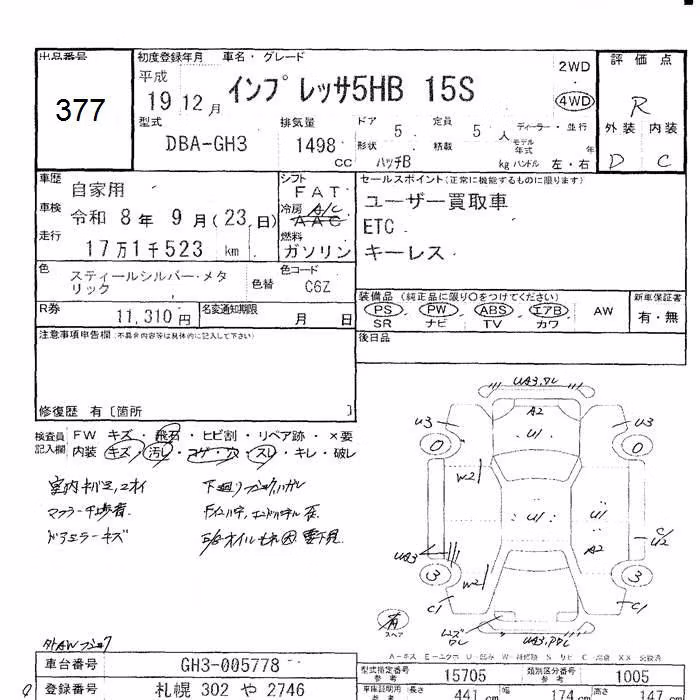 出品番号
377
初度登録年月 車名・グレード
平成
19 12月
インプレッサ5HB 15S
2WD
4WD
評価点
R
外装 内装
D C
型式
DBA-GH3
排気量
1498 cc
ドア 5
定員 5 人
ディーラー・並行
形状 ハッチB
積載 kg
モデル年式 年
ハンドル 左・右
車歴 自家用
車検 令和 8年 9月(23日)
走行 17万1千523 km
シフト FAT
冷房 A/C
AAC
燃料 ガソリン
セールスポイント(正常に機能するものに限ります)
ユーザー買取車
ETC
キーレス
色 スティールシルバー・メタリック
色替
色コード C6Z
R券 11,310円
名変通知期限 月 日
装備品 (純正品に限り○をつけてください)
PS・PW・ABS・エアB・AW
SR ナビ TV カワ
新車保証書
有・無
後日品
注意事項申告欄(不具合内容等は具体的に記入して下さい)
修復歴 有〔箇所 〕
検査員記入欄
FW キズ・飛石・ヒビ割・リペア跡・×要
内装 キズ・汚レ・コゲ・穴・スレ・キレ・破レ
下廻り
ドアミラーキズ
UA3.
A2
U1
U3
U3
0
0
W2
U1
U1
UA3
A2
3
3
W2
C1
C1
有
スペア
車台番号 GH3-005778
登録番号 札幌 302 や 2746
型式指定番号 参考 15705
類別区分番号 参考 1005
長さ 441 cm
174 cm
147